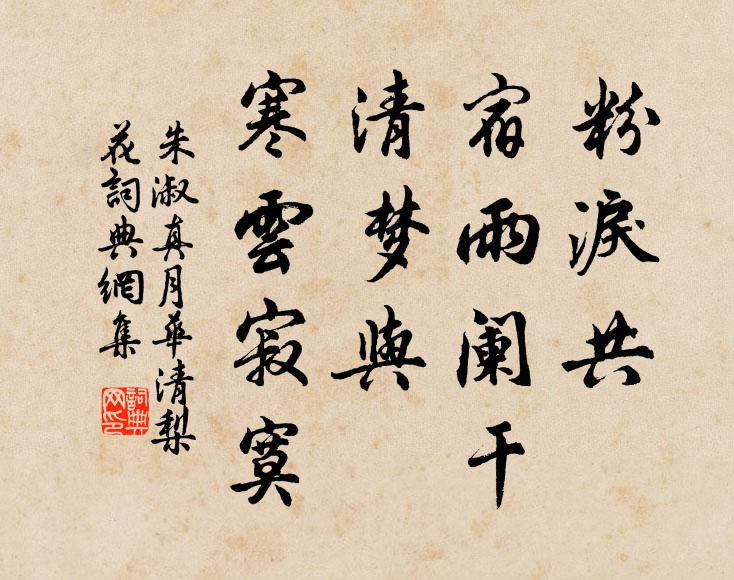 粉淚共
宿雨阑干
清梦與
寒雲寂寞
朱淑真月華清梨
花詞典網集
詞典网印